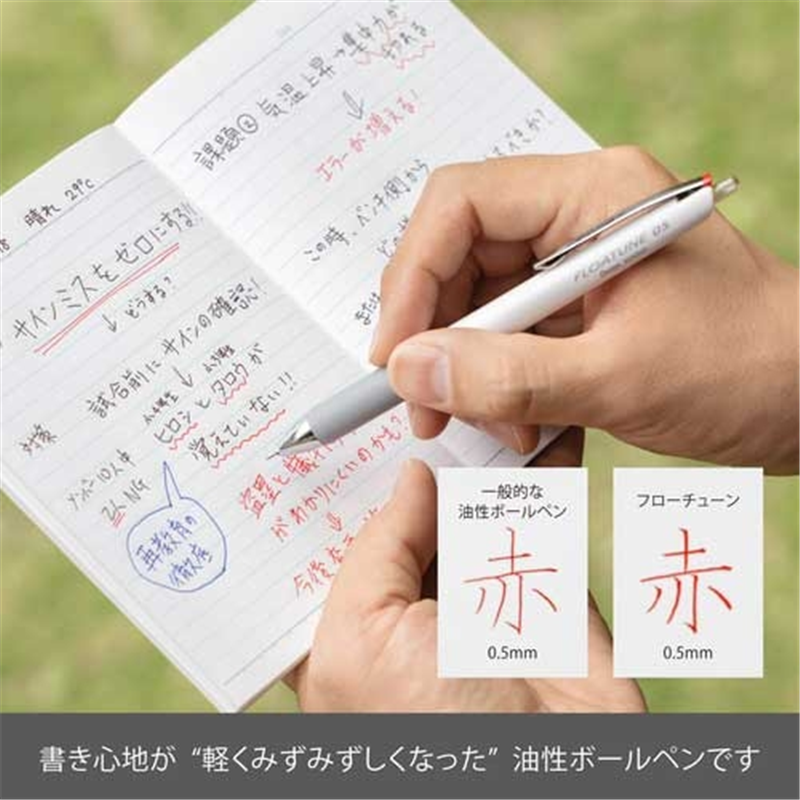 晴れ 29℃
サインミスをゼロにする!!
↓ どうする?
対策 試合前にサインの確認!
ヒロシとタロウが
覚えていない!!
10人中
2人NG
再教育の
徹底
課題② 気温上昇→集中力が
↓
エラーが増える!
この時、ベンチ側から
がわかりにくいのかも?
↓
FLOATUNE 05
一般的な
油性ボールペン
赤
0.5mm
フローチューン
赤
0.5mm
書き心地が “軽くみずみずしくなった” 油性ボールペンです